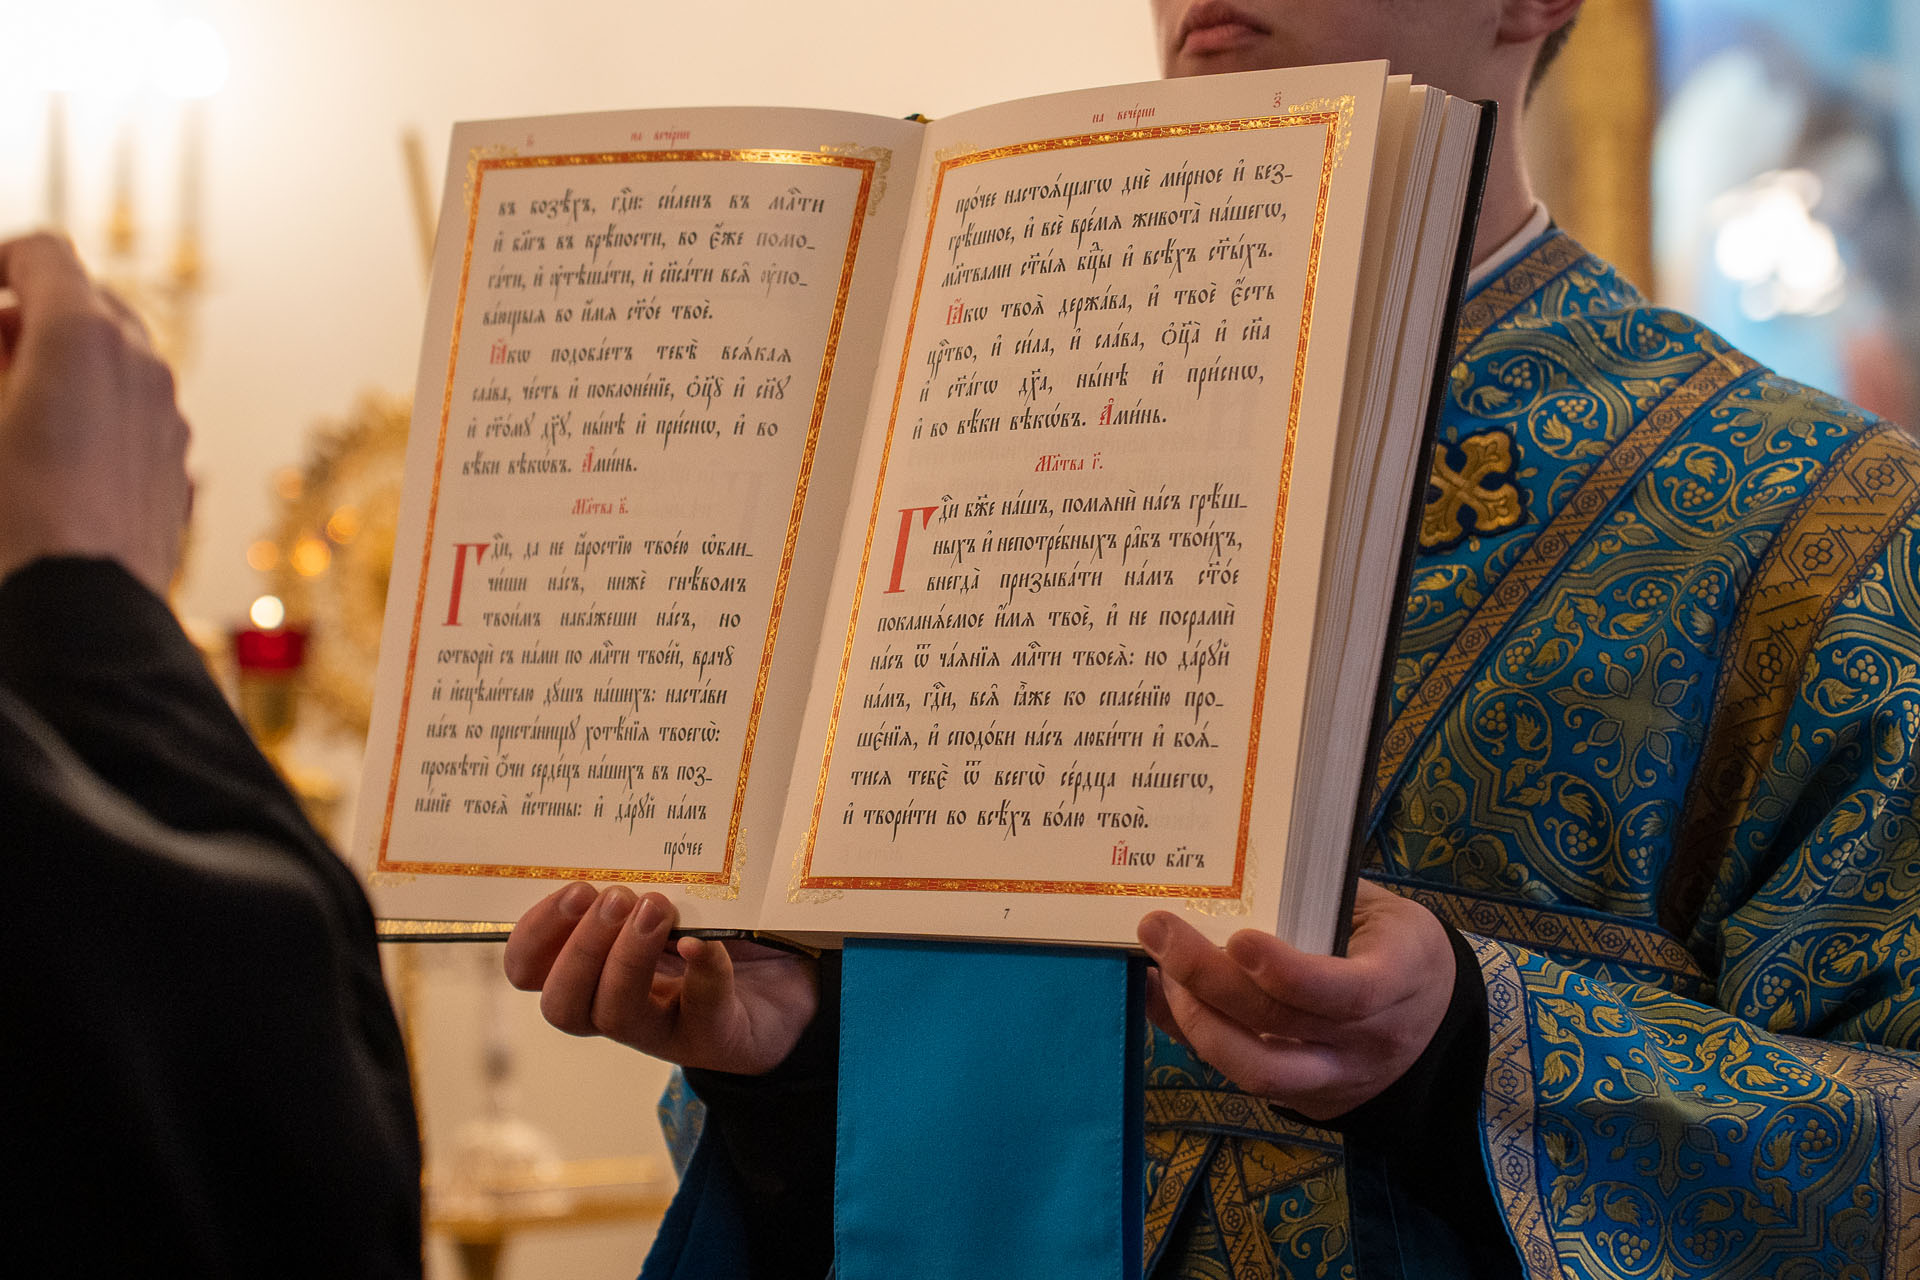 на вече́рни
въ козѣ́хъ, гдⷭ҇и: си́ленъ въ млⷭ҇ти
и҆ бл҃гъ въ крѣ́пости, во є҆́же помо_
га́ти, и҆ ᲂу҆тѣша́ти, и҆ сп҃са́ти всѧ̑ ᲂу҆по_
ва́ющыѧ во и҆́мѧ ст҃о́е твоѐ.
Ꙗ҆́кѡ подоба́етъ тебѣ̀ всѧ́каѧ
сла́ва, че́сть и҆ поклоне́нїе, ѻ҆ц҃ꙋ̀ и҆ сн҃ꙋ
и҆ ст҃о́мꙋ дх҃ꙋ, ны́нѣ и҆ при́снѡ, и҆ во
вѣ́ки вѣкѡ́въ. А҆ми́нь.
Мл҃тва в҃.
Гдⷭ҇и, да не ꙗ҆́ростїю твое́ю ѡ҆бли_
чи́ши на́съ, нижѐ гнѣ́вомъ
твои́мъ нака́жеши на́съ, но
сотворѝ съ на́ми по млⷭ҇ти твое́й, врачꙋ̀
и҆ и҆сцѣли́телю дꙋ́шъ на́шихъ: наста́ви
на́съ ко приста́нищꙋ хотѣ́нїѧ твоегѡ̀:
просвѣтѝ ѻ҆́чи серде́цъ на́шихъ въ поз_
на́нїе твоеѧ̀ и҆́стины: и҆ да́рꙋй на́мъ
про́чее
на вече́рни
з҃
про́чее настоѧ́щагѡ днѐ ми́рное и҆ без_
грѣ́шное, и҆ всѐ вре́мѧ живота̀ на́шегѡ,
мл҃твами ст҃ы́ѧ бцⷣы и҆ всѣ́хъ ст҃ы́хъ.
Ꙗ҆́кѡ твоѧ̀ держа́ва, и҆ твоѐ є҆́сть
црⷭ҇тво, и҆ си́ла, и҆ сла́ва, ѻ҆ц҃а̀ и҆ сн҃а
и҆ ст҃а́гѡ дх҃а, ны́нѣ и҆ при́снѡ,
и҆ во вѣ́ки вѣкѡ́въ. А҆ми́нь.
Мл҃тва г҃.
Гдⷭ҇и бж҃е на́шъ, помѧнѝ на́съ грѣ́ш_
ныхъ и҆ непотре́бныхъ ра̑бъ твои́хъ,
внегда̀ призыва́ти на́мъ ст҃о́е
покланѧ́емое и҆́мѧ твоѐ, и҆ не посрамѝ
на́съ ѿ ча́ѧнїѧ млⷭ҇ти твоеѧ̀: но да́рꙋй
на́мъ, гдⷭ҇и, всѧ̑ ꙗ҆̀же ко спасе́нїю про_
ше́нїѧ, и҆ сподо́би на́съ люби́ти и҆ боѧ́_
тисѧ тебє̀ ѿ всегѡ̀ се́рдца на́шегѡ,
и҆ твори́ти во всѣ́хъ во́лю твою̀.
Ꙗ҆́кѡ бл҃гъ
7